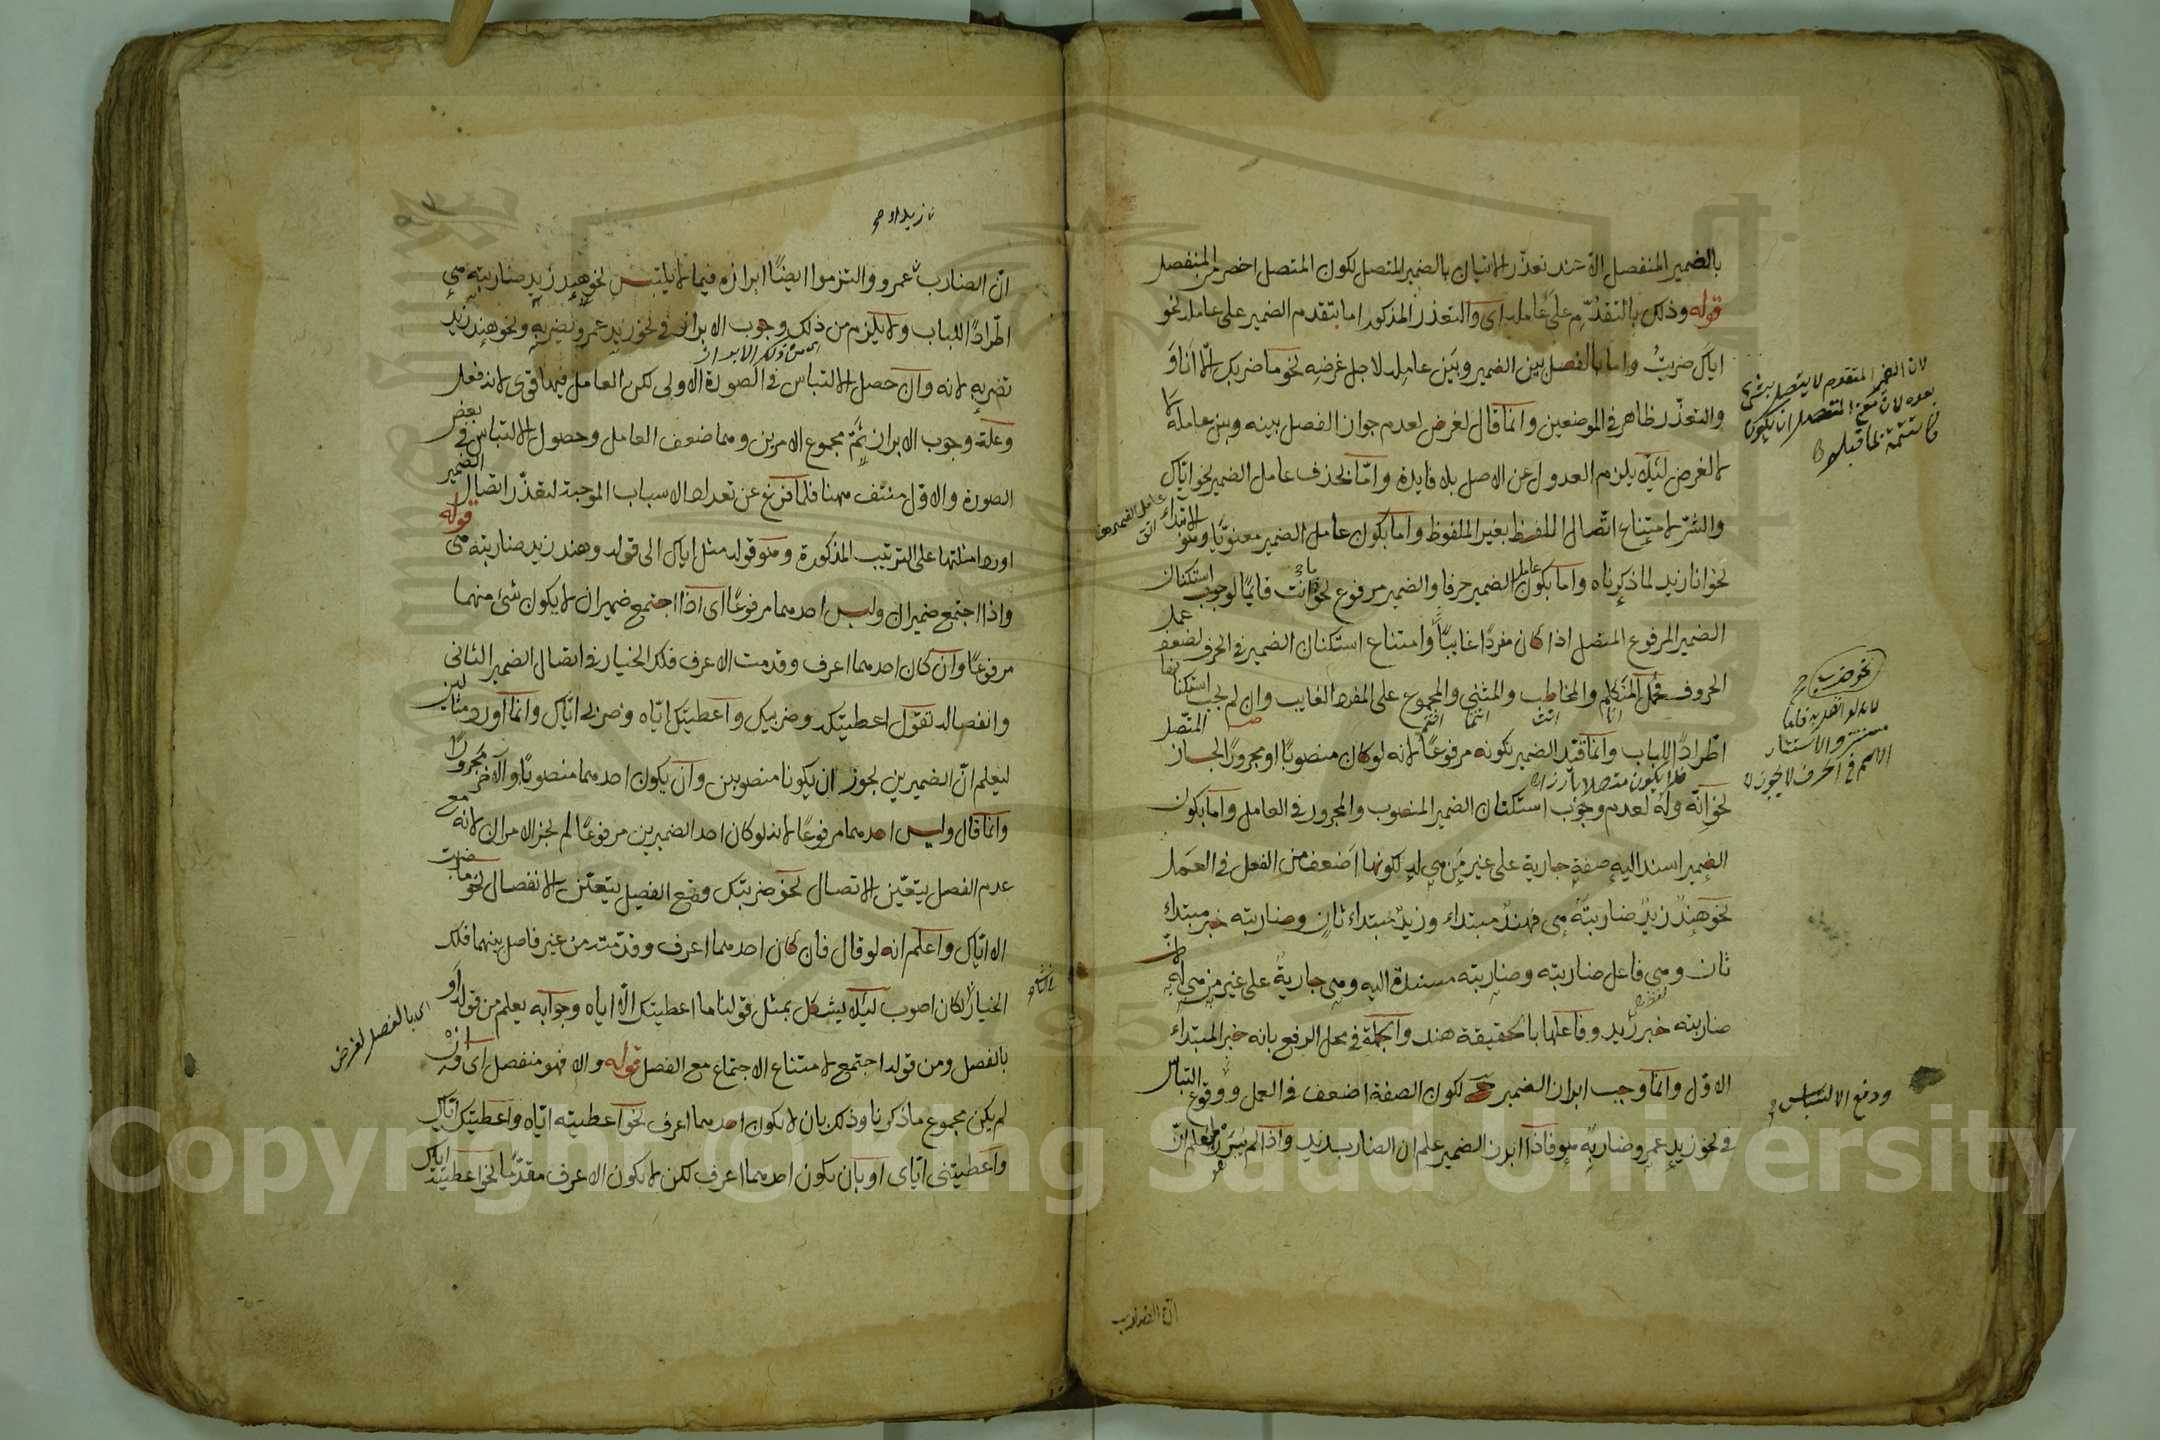 بالضمير المنفصل الا عند تعذر الاتيان بالضمير المتصل لكون المتصل اخصر من المنفصل
قوله وذلك بالتقدم على عامله اى والتعذر المذكور اما بتقدم الضمير على عامله نحو
اياك ضربت واما بالفصل بين الضمير وبين عامله لاجل غرضه نحو ما ضربك الا انا و
والتعذر ظاهر فى الموضعين وانما قال لغرض لعدم جواز الفصل بينه وبين عامله لا
لا لغرض لئلا يلزم العدول عن الاصل بلا فايدة واما بحذف عامل الضمير نحو اياك
والشر لامتناع اتصال اللفظ بغير الملفوظ واما بكون عامل الضمير معنويا وهو الابتداء
نحو انا زيد لما ذكرناه واما بكون عامل الضمير حرفا والضمير مرفوع نحو ما انت قايما لوجوب استكنان
الضمير المرفوع المتصل اذا كان مفردا غايبا وامتناع استكنان الضمير فى الحرف لضعف عمل
الحروف فحمل المتكلم والمخاطب والمثنى والمجموع على المفرد الغايب وان لم يجب استكنانها
اطرادا للباب وانما قيد الضمير بكونه مرفوعا لانه لو كان منصوبا او مجرورا لجاز المتصل
نحو انه وله لعدم وجوب استكنان الضمير المنصوب والمجرور فى العامل واما بكون
الضمير اسند اليه صفة جارية على غير من هى له لكونها اضعف من الفعل فى العمل
نحو هند زيد ضاربته هى فهند مبتداء وزيد مبتداء ثان وضاربته خبر مبتداء
ثان وهى فاعل ضاربته وضاربته مسندة اليه وهى جارية على غير من هى له لان
ضاربته خبر زيد وفاعلها بالحقيقة هند والجملة فى محل الرفع بانه خبر المبتداء
الاول وانما وجب ابراز الضمير لكون الصفة اضعف فى العمل ووقوع التباس
فى نحو زيد عمرو ضاربه هو فاذا ابرز الضمير علم ان الضارب زيد واذا لم يبرز علم ان
لان الضمير المتقدم لا يتصل بشئ
بعده لان معنى المتصل ان يكون
كا تتمة لما قبله
نحو ضرب
مستتر والاستتار
الاسم فى الحرف لا يجوز
ودفع الالتباس
ان الضارب
ان الضارب عمرو والتزموا ايضا ابرازه فيما لا يلتبس نحو هند زيد ضاربته هى
اطرادا للباب ولا يلزم من ذلك وجوب الابراز فى نحو زيد عمرو يضربه ونحو هند زيد
تضربه لانه وان حصل الالتباس فى الصورة الاولى لكن العامل فيها قوى لانه فعل
وعلة وجوب الابراز ثمة مجموع الامرين وهما ضعف العامل وحصول الالتباس فى بعض
الصورة والاول منتف ههنا فلما فرغ عن تعداد الاسباب الموجبة لتعذر اتصال الضمير
اورد امثلتها على الترتيب المذكورة وهو قوله مثل اياك الى قوله وهند زيد ضاربته هى قوله
واذا اجتمع ضميران وليس احدهما مرفوعا اى اذا اجتمع ضميران لا يكون شئ منهما
مرفوعا وان كان احدهما اعرف وقدمت الاعرف فلك الخيار فى اتصال الضمير الثانى
وانفصاله تقول اعطيتكه وضربيك واعطيتك اياه وضربى اياك وانما اورد مثالين
ليعلم ان الضميرين يجوز ان يكونا منصوبين وان يكون احدهما منصوبا والاخر مجرورا
وانما قال وليس احدهما مرفوعا لانه لو كان احد الضميرين مرفوعا لم يجز الامران لانه مع
عدم الفصل يتعين الاتصال نحو ضربتك ومع الفصل يتعين الانفصال نحو ما ضربت
الا اياك واعلم انه لو قال فان كان احدهما اعرف وقدمته من غير فاصل بينهما فلك
الخيار لكان اصوب لئلا يشكل بمثل قولنا ما اعطيتك الا اياه وجوابه يعلم من قوله او
بالفصل ومن قوله اجتمع لامتناع الاجتماع مع الفصل قوله والا فهو منفصل اى وان
لم يكن مجموع ما ذكرنا وذلك بان لا يكون احدهما اعرف نحو اعطيته اياه واعطيتك اياك
واعطيتنى اياى او بان يكون احدهما اعرف لكن لا يكون الاعرف مقدما نحو اعطيته اياك
اى بالفصل لغرض
Copyright © King Saud University
1957